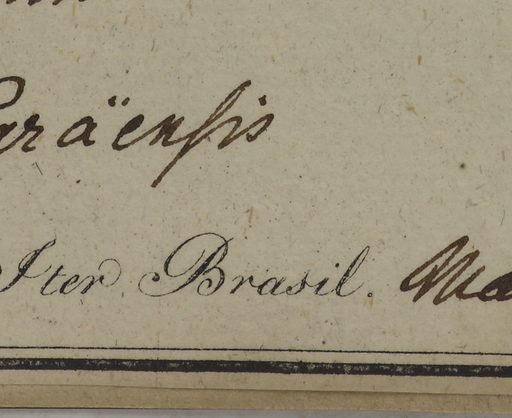 Paräensis
Iter Brasil. Ma